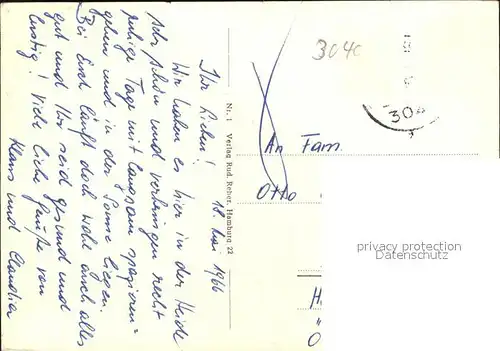 18. Mai 1966
Ihr Lieben!
Wir haben es hier in der Heide
sehr schön und verbringen recht
ruhige Tage mit langsam spazieren=
gehen und in der Sonne liegen.
Bei Euch läuft doch wohl auch alles
gut und Ihr seid gesund und
lustig! Viele liebe Grüße von
Klaus und Claudia
Nr. 1 Verlag Rud. Reher, Hamburg 22
3040
30
An Fam.
Otto
privacy protection
Datenschutz
H
O